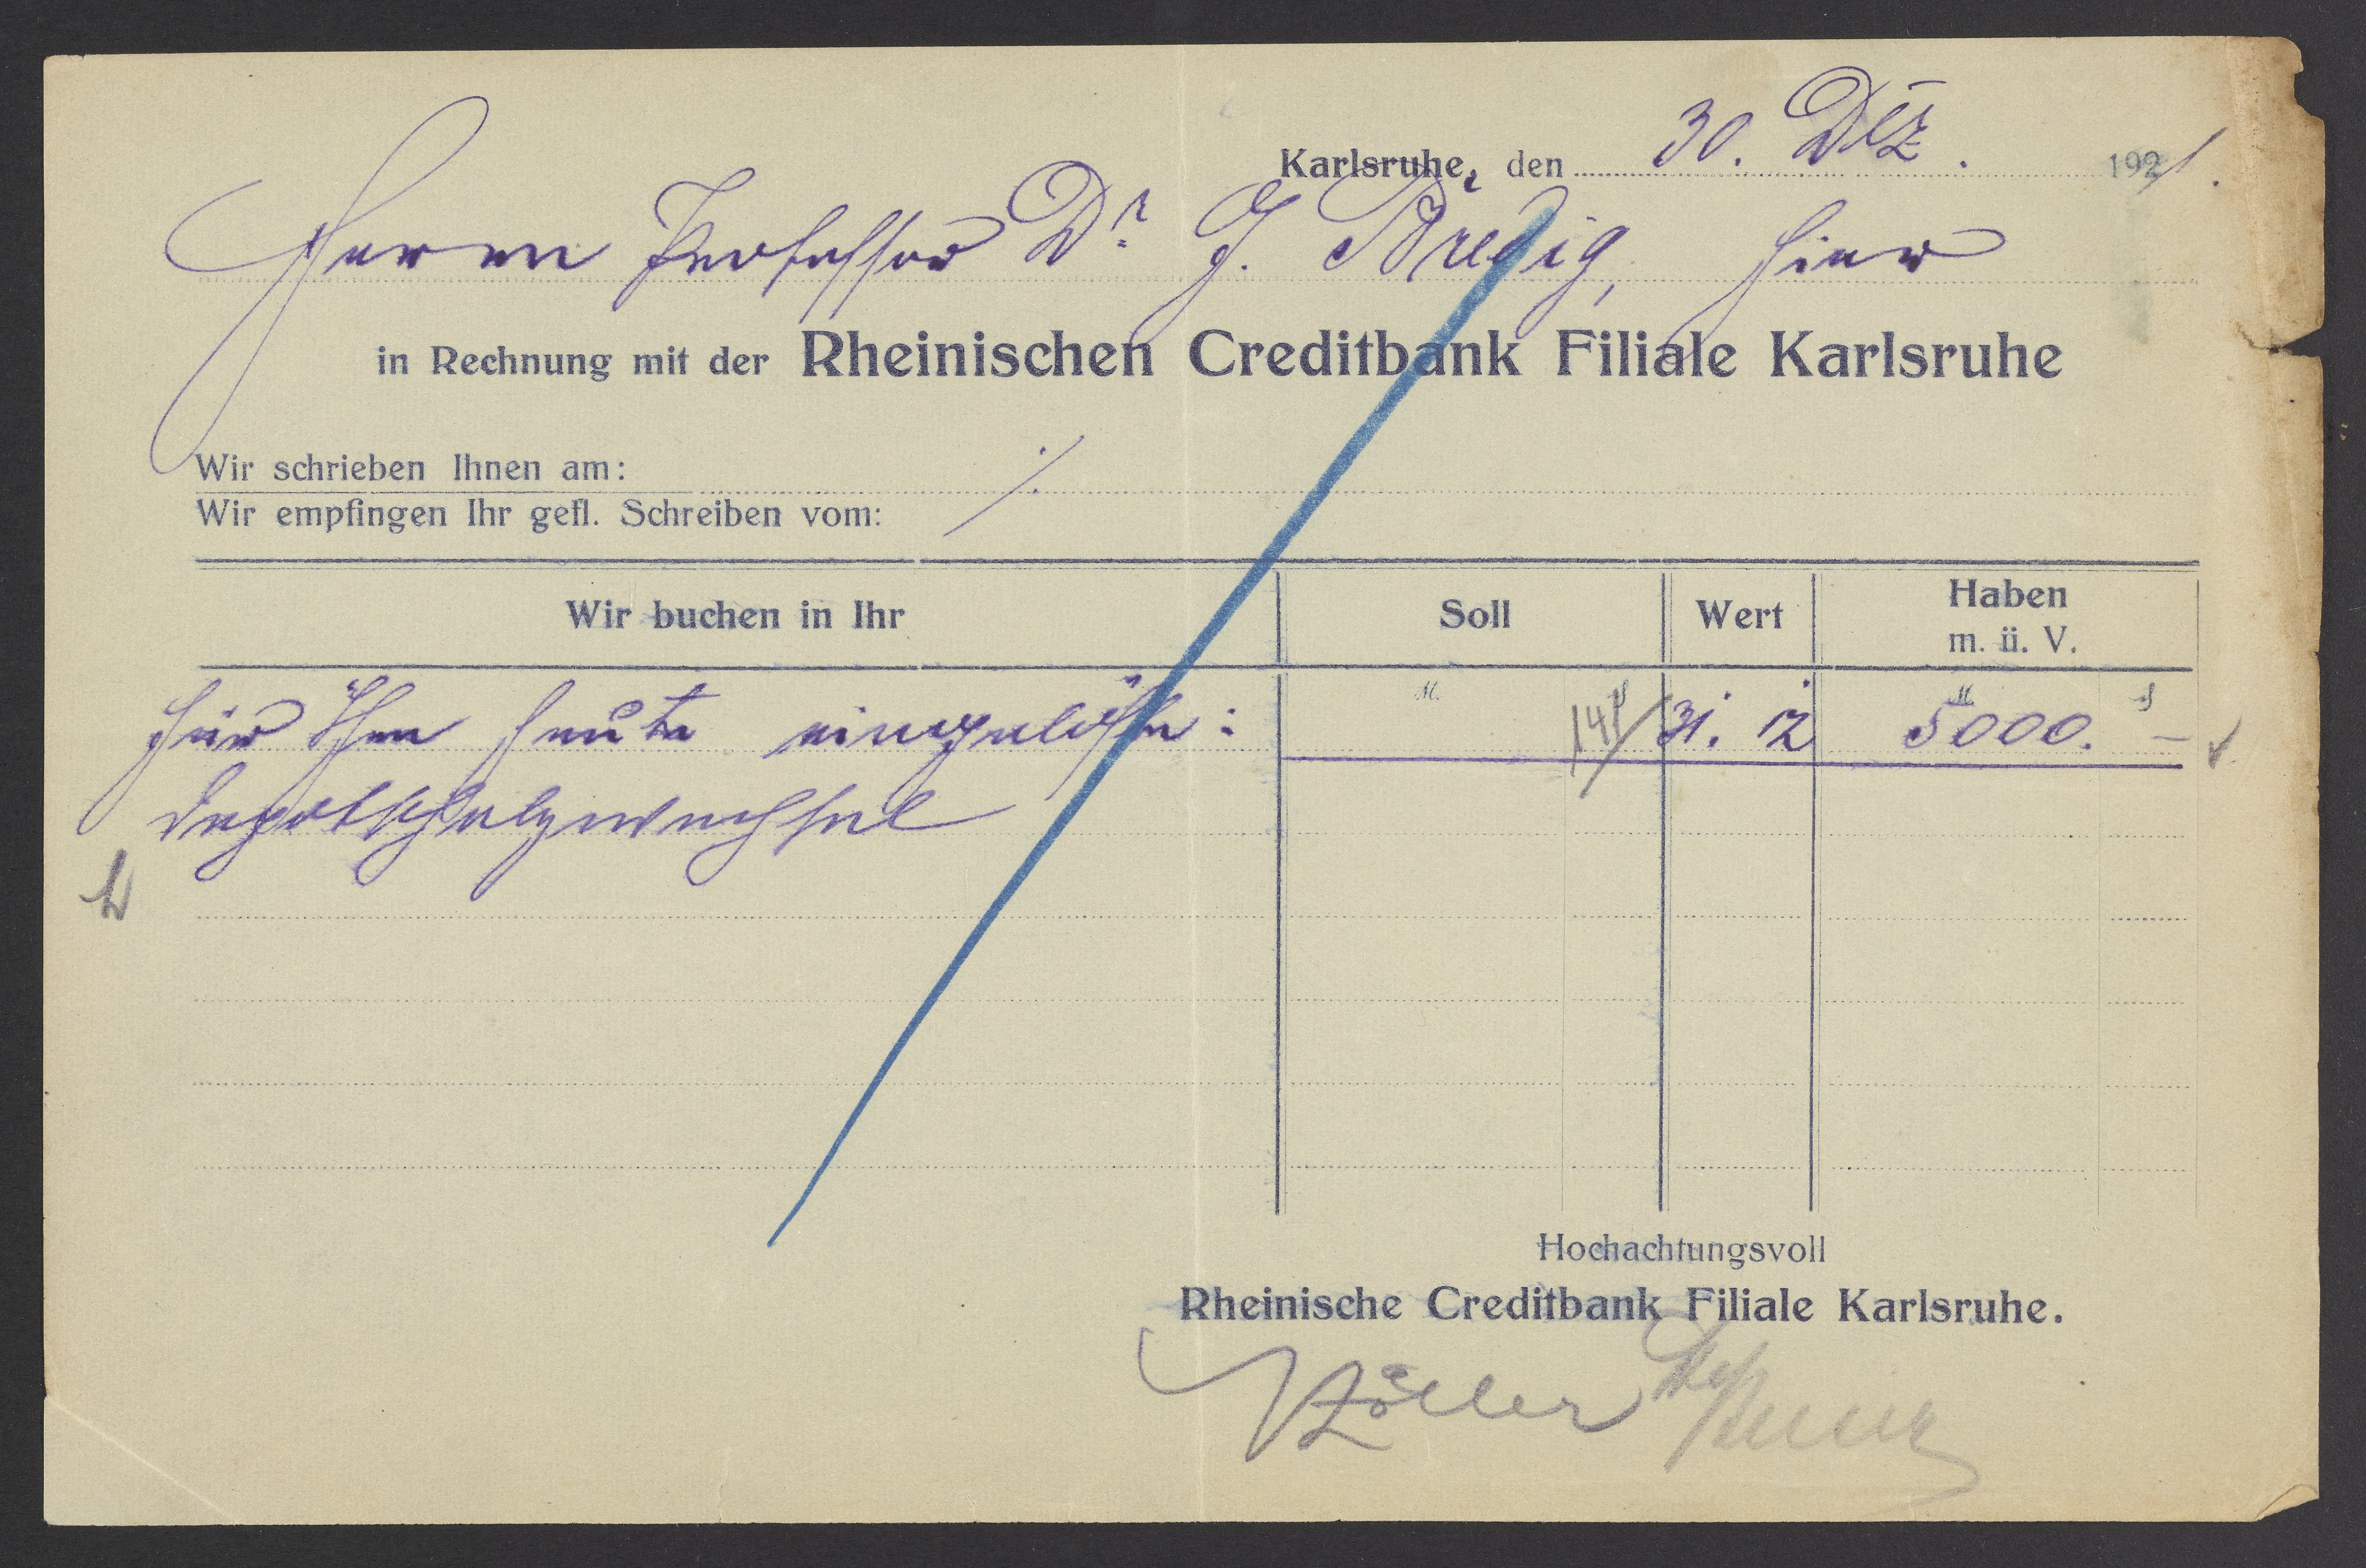 Karlsruhe, den 30. Dez. 1921.
Herrn Professor Dr. G. Bredig, hier
in Rechnung mit der Rheinischen Creditbank Filiale Karlsruhe
Wir schrieben Ihnen am: ./.
Wir empfingen Ihr gefl. Schreiben vom:
Wir buchen in Ihr Soll Wert Haben
m. ü. V.
M. ₰ M ₰
für Ihre heute eingelöste: 31. 12 5000. –
Hochachtungsvoll
Rheinische Creditbank Filiale Karlsruhe.